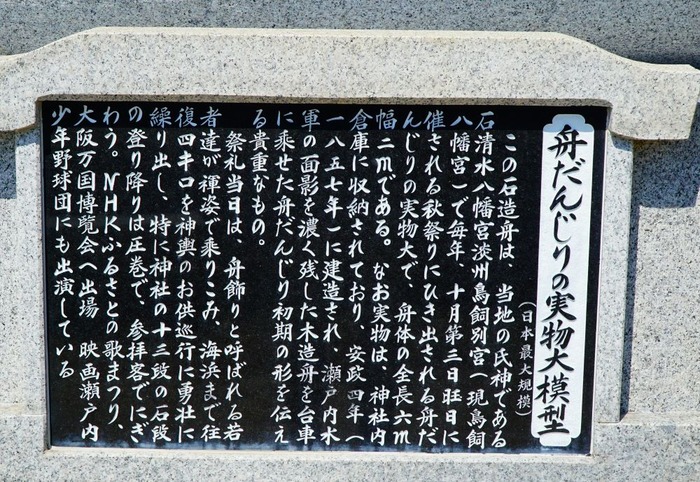 舟だんじりの実物大模型
(日本最大規模)
この石造舟は、当地の氏神である
石清水八幡宮淡州鳥飼別宮(現鳥飼
八幡宮)で毎年、十月第三日旺日に
催される秋祭りにひき出される舟だ
んじりの実物大で、舟体の全長六m
幅二mである。なお実物は、神社内
倉庫に収納されており、安政四年(
一八五七年)に建造され、瀬戸内水
軍の面影を濃く残した木造舟を台車
に乗せた舟だんじり初期の形を伝え
る貴重なもの。
祭礼当日は、舟飾りと呼ばれる若
者達が褌姿で乗りこみ、海浜まで往
復四キロを神輿のお供巡行に勇壮に
繰り出し、特に神社の十三段の石段
の登り降りは圧巻で、参拝客でにぎ
わう。NHKふるさとの歌まつり、
大阪万国博覧会へ出場 映画瀬戸内
少年野球団にも出演している